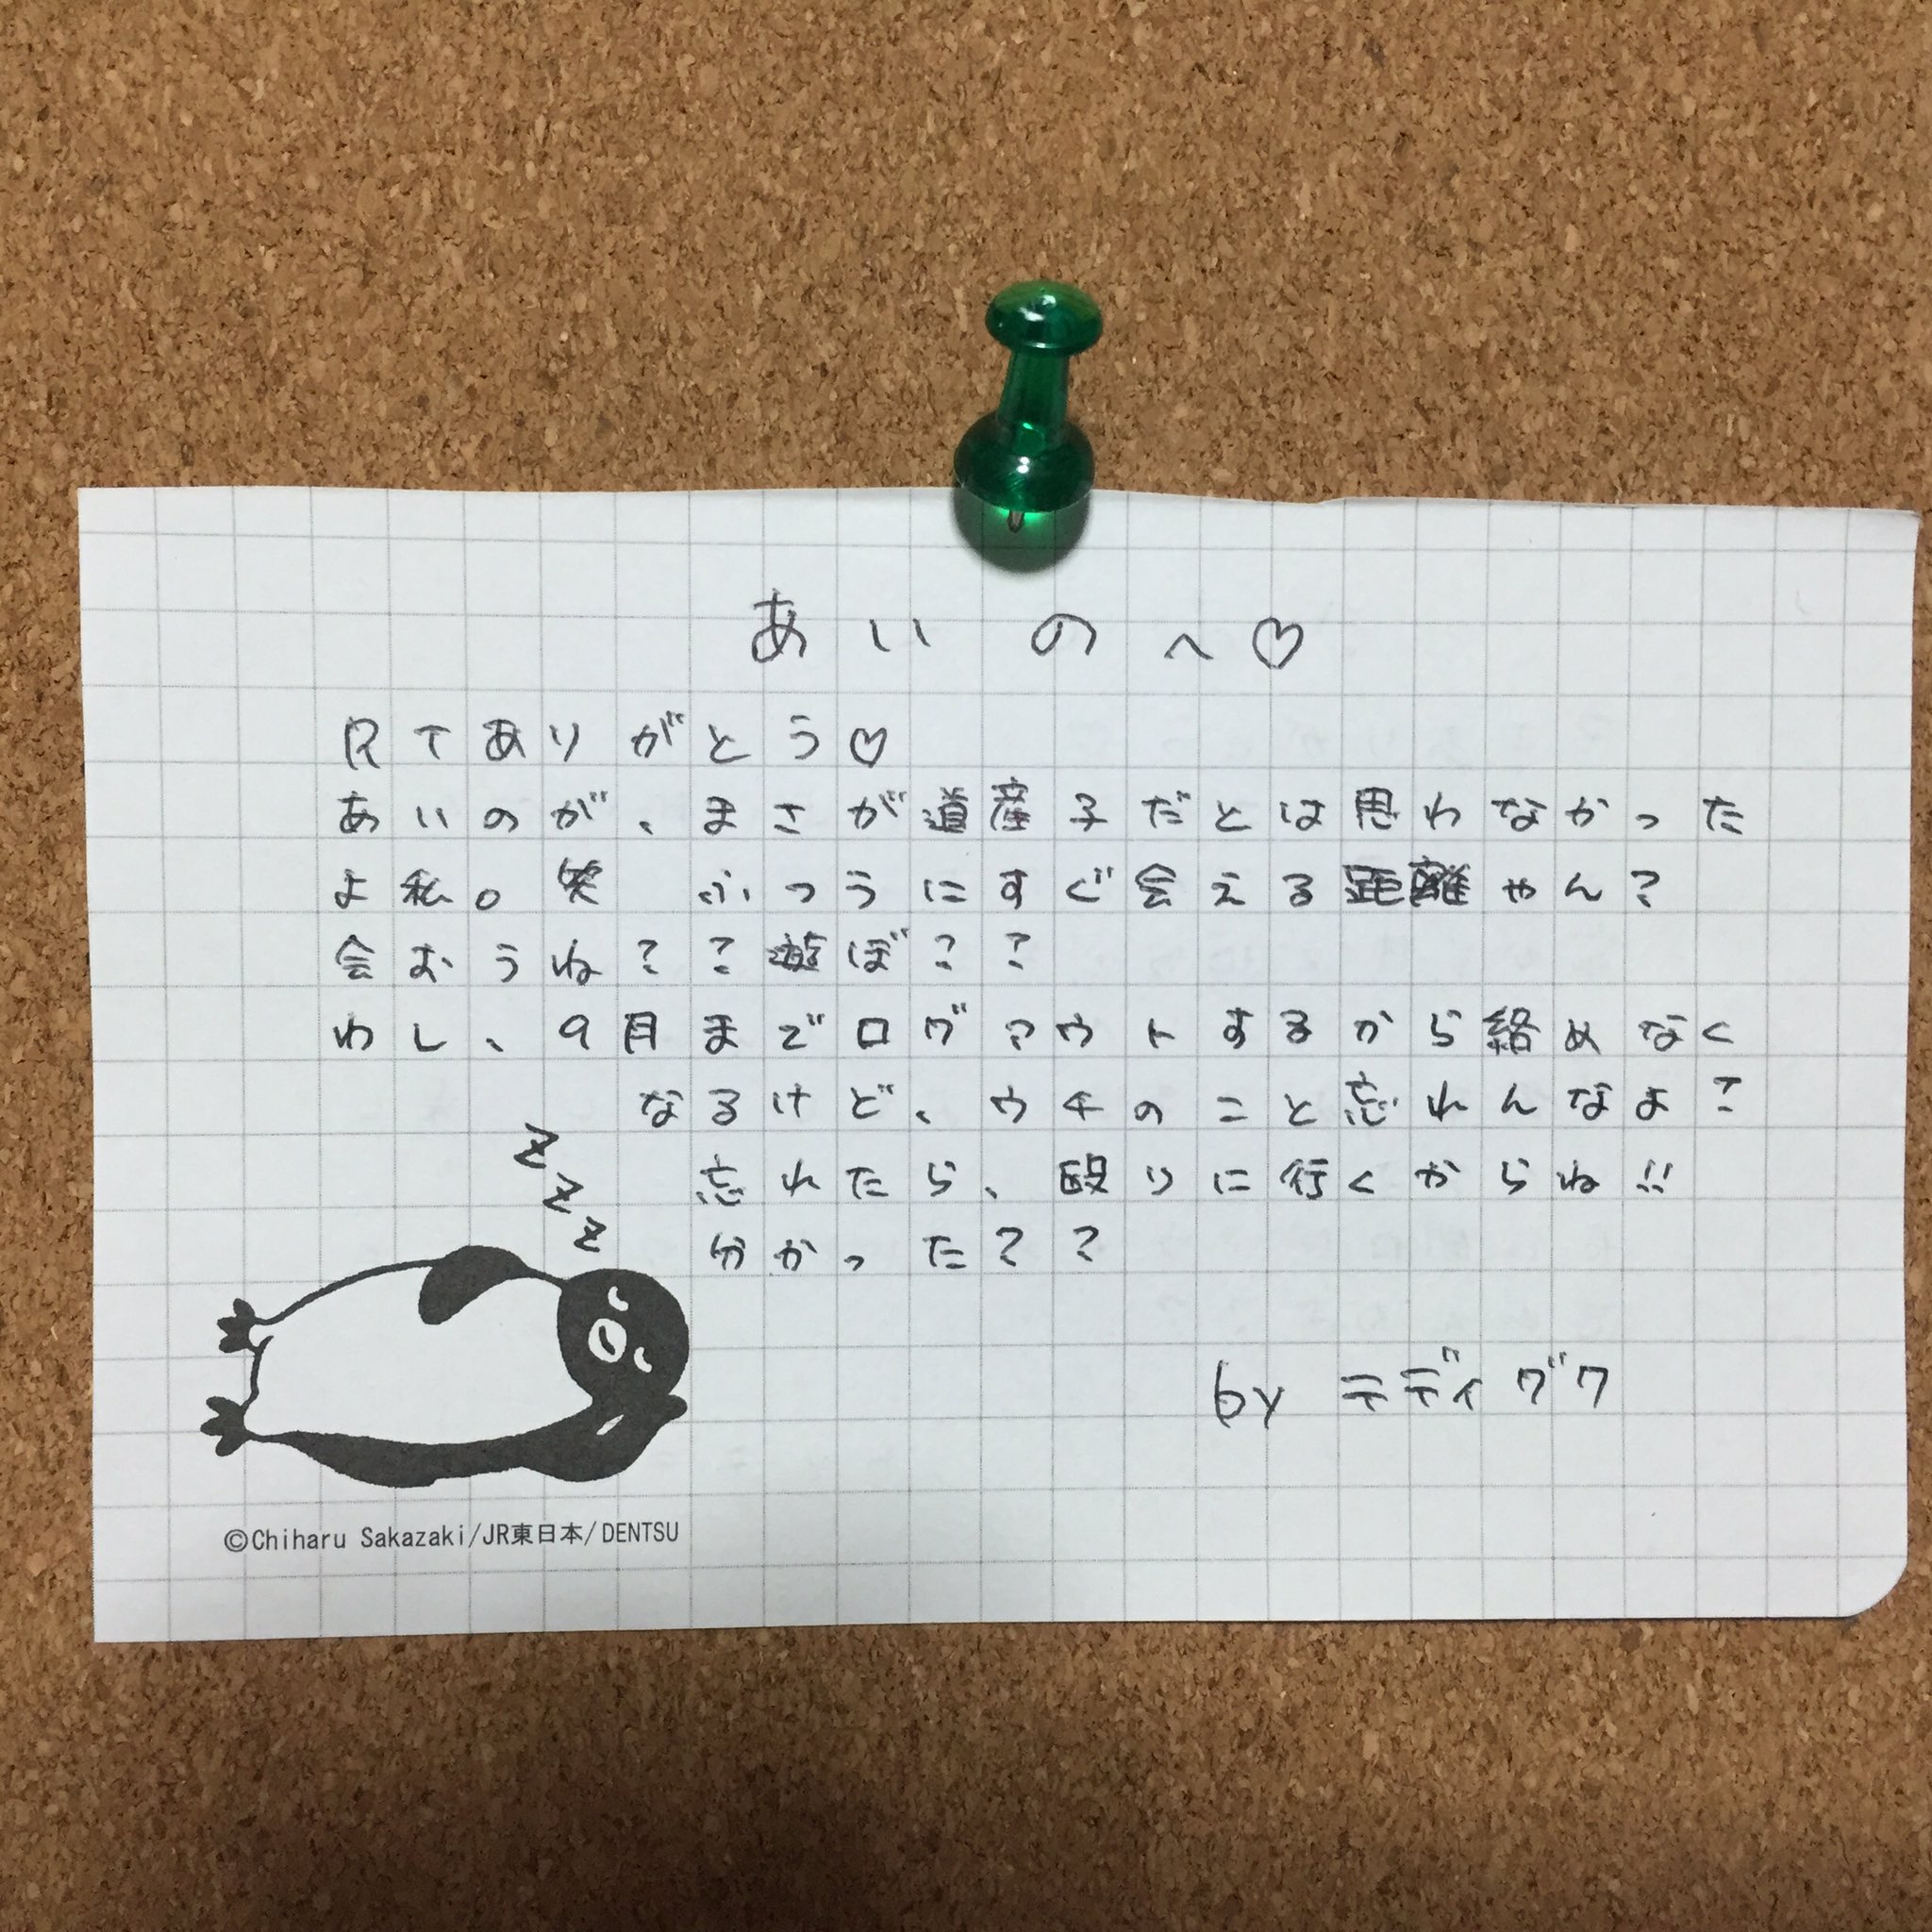 あいのへ♡
RTありがとう♡
あいのが、まさが道産子だとは思わなかった
よ私。笑 ふつうにすぐ会える距離やん?
会おうね??遊ぼ??
わし、9月までログアウトするから絡めなく
なるけど、ウチのこと忘れんなよ?
忘れたら、殴りに行くからね!!
分かった??
zzz
by テディグワ
©Chiharu Sakazaki/JR東日本/DENTSU